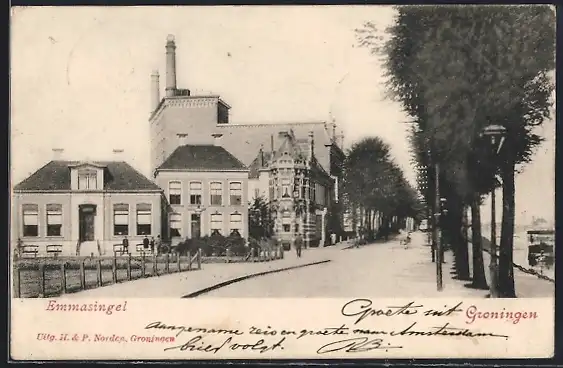 Emmasingel
Groete uit
Groningen
Uitg. H. & P. Norden, Groningen
Aangename reis en groete naar Amsterdam
brief volgt.